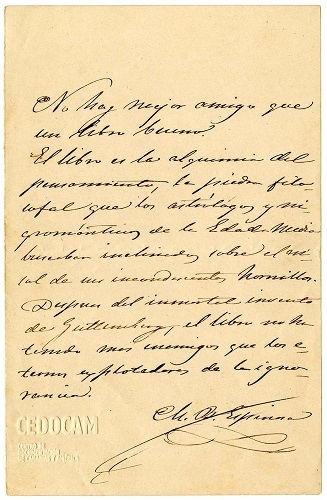 No hay mejor amigo que
un libro bueno.
El libro es la alquimia del
pensamiento, la piedra filo-
sofal que los astrólogos y ni-
grománticos de la Edad Media
buscaban inclinados sobre el
de sus incandescentes hornillos.
Despues del inmortal invento
de Guttemberg, el libro no ha
tenido mas enemigos que los e-
ternos explotadores de la igno-
rancia.
Espinosa
CEDOCAM